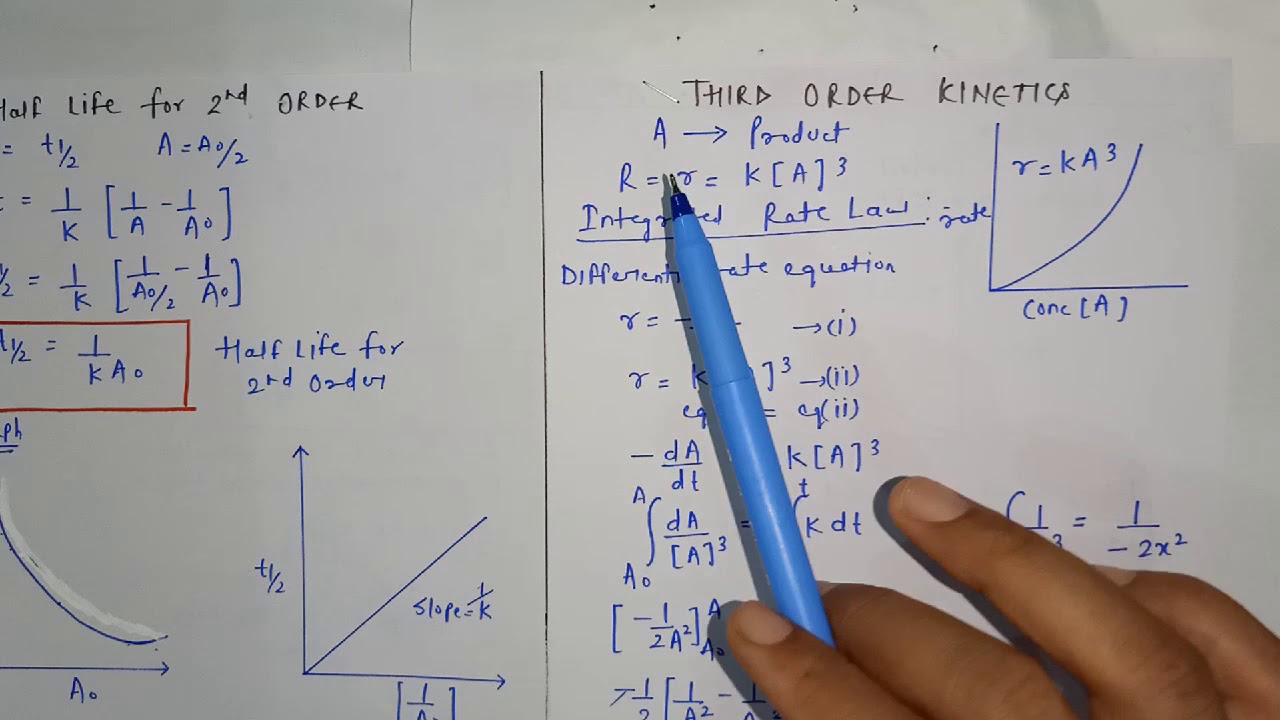 Half Life for 2nd ORDER
= t1/2 A = A0/2
= 1/K [1/A - 1/A0]
1/2 = 1/K [1/A0/2 - 1/A0]
t1/2 = 1/KA0
Half Life for
2nd Order
ph
A0
t1/2
Slope = 1/K
[1/A0]
THIRD ORDER KINETICS
A → Product
R = r = K[A]3
Integrated Rate Law :
Differenti rate equation
r = - →(i)
r = K ]3 →(ii)
eq = eq(ii)
- dA/dt K[A]3
∫ A A0 dA/[A]3 = ∫ t K dt
[-1/2A2] A A0
-1/2 [1/A2 - 1/A
rate
r = KA3
Conc [A]
∫ 1/3 = 1/-2x2